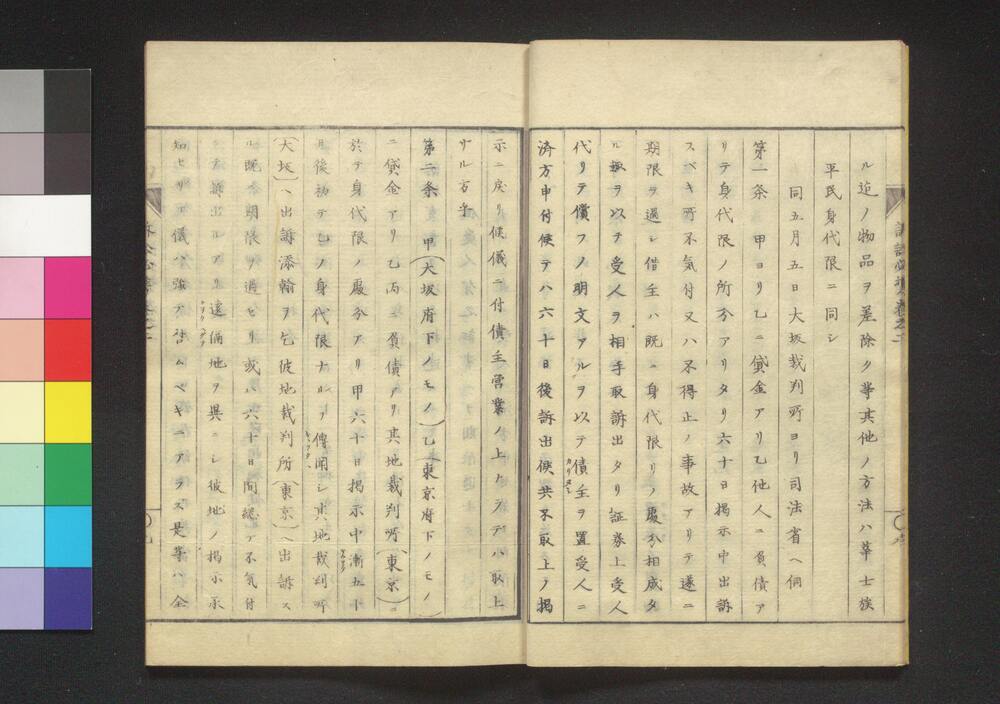 ル迄ノ物品ヲ差除ク等其他ノ方法ハ華士族
平民身代限ニ同シ
同五月五日大坂裁判所ヨリ司法省ヘ伺
第一条 甲ヨリ乙ニ貸金アリ乙他人ニ負債ア
リテ身代限ノ所分アリタリ六十日掲示中出訴
スベキ所不気付又ハ不得止ノ事故アリテ遂ニ
期限ヲ過シ借主ハ既ニ身代限リノ處分相成タ
ル趣ヲ以テ受人ヲ相手取訴出タリ証券上受人
代リテ償フノ明文アルヲ以テ債主ヲ置受人ニ
カリヌシ
済方申付候テハ六十日後訴出候共不取上ノ掲
示ニ戻リ候儀ニ付債主営業ノ上ナラデハ取上
サル方乎
第二条 甲(大坂府下ノモノ)乙(東京府下ノモノ)
ニ貸金アリ乙丙ニ負債アリ其地裁判所(東京)ニ
於テ身代限ノ處分アリ甲六十日掲示中漸五十
日後初テ乙ノ身代限ナルヲ傳聞シ其地裁判所
(大坂)ヘ出訴添翰ヲ乞彼地裁判所(東京)ヘ出訴ス
ル既ニ期限ヲ過セリ或ハ六十日間総テ不気付
シテ訴出ルアリ遠隔地ヲ異ニシ彼地ノ掲示承
知セサル儀ハ強テ咎ムベキニアラス是等ハ全